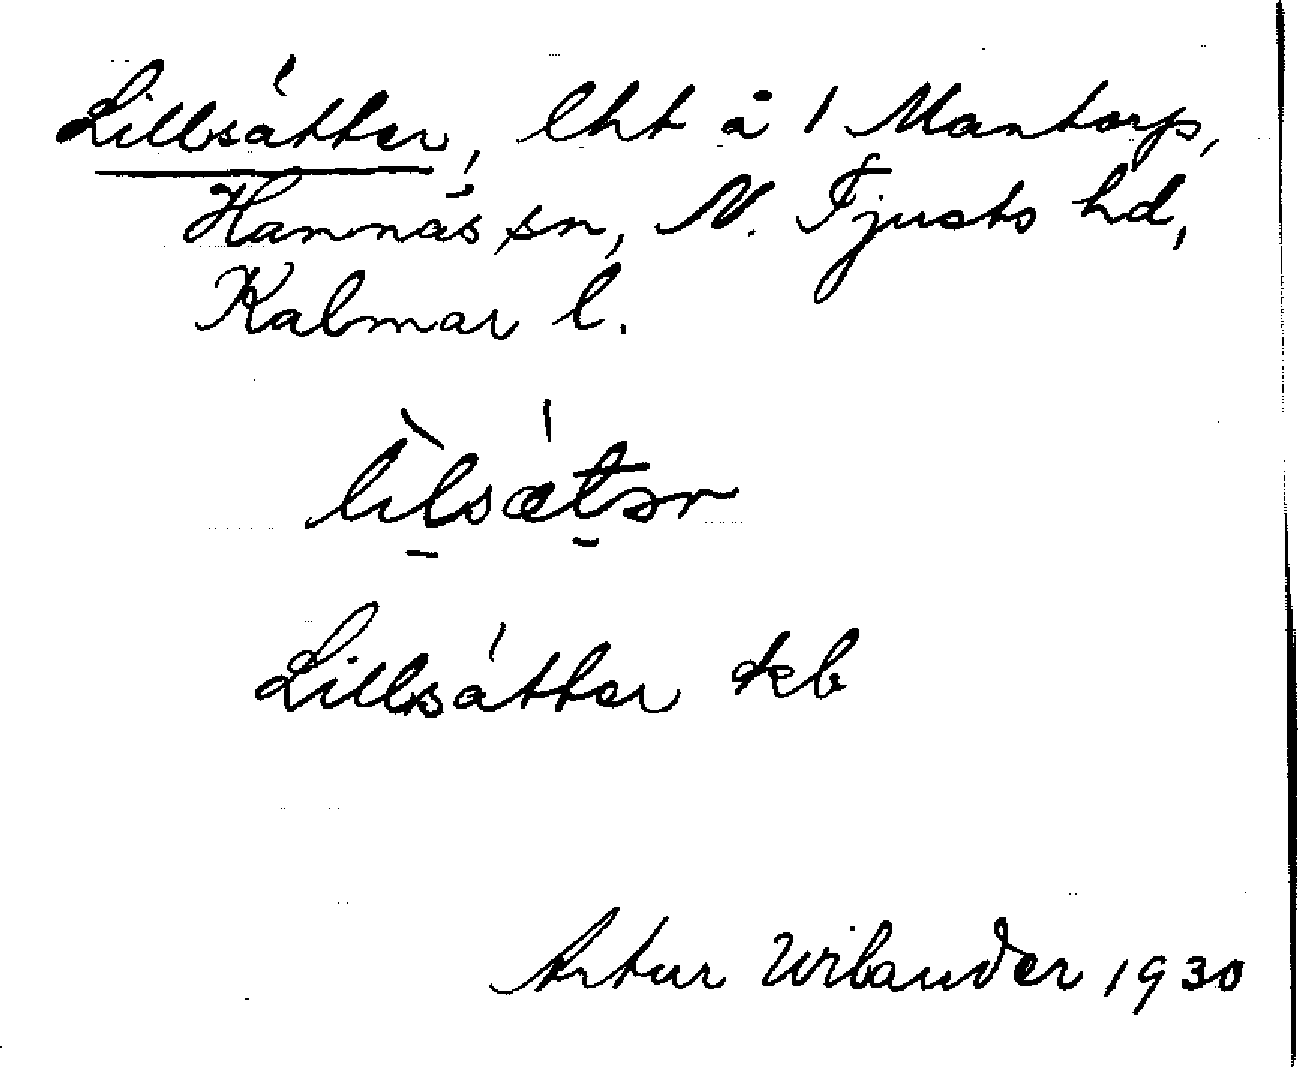 Lillsätter, lht å 1 Mantorp,
Hannäs sn, N. Tjusts hd,
Kalmar l.
lìlsǽtər
Lillsätter kb
Artur Wilander 1930